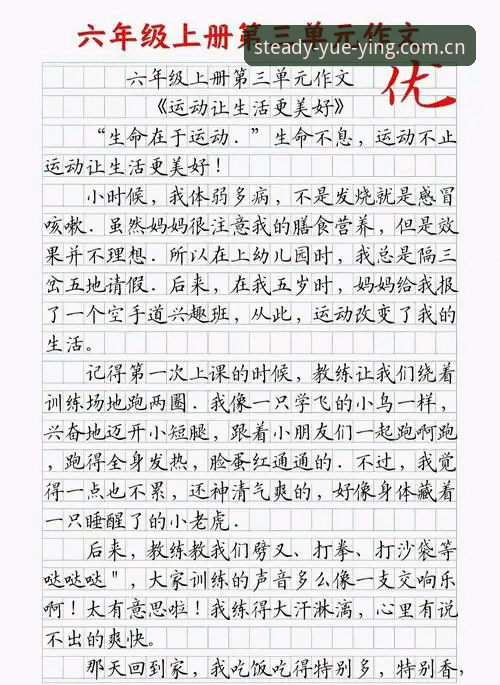 六年级上册第三单元作文
steady-yue-ying.com.cn
优
六年级上册第三单元作文
《运动让生活更美好》
“生命在于运动．”生命不息，运动不止
运动让生活更美好！
小时候，我体弱多病，不是发烧就是感冒
咳嗽．虽然妈妈很注意我的膳食营养，但是效
果并不理想．所以在上幼儿园时，我总是隔三
岔五地请假．后来，在我五岁时，妈妈给我报
了一个空手道兴趣班，从此，运动改变了我的
生活。
记得第一次上课的时候，教练让我们绕着
训练场地跑两圈．我像一只学飞的小鸟一样，
兴奋地迈开小短腿，跟着小朋友们一起跑啊跑
，跑得全身发热，脸蛋红通通的．不过，我觉
得一点也不累，还神清气爽的，好像身体藏着
一只睡醒了的小老虎．
后来，教练教我们劈叉、打拳、打沙袋等
哒哒哒"，大家训练的声音多么像一支交响乐
啊！太有意思啦！我练得大汗淋漓，心里有说
不出的爽快。
那天回到家，我吃饭吃得特别多，特别香，